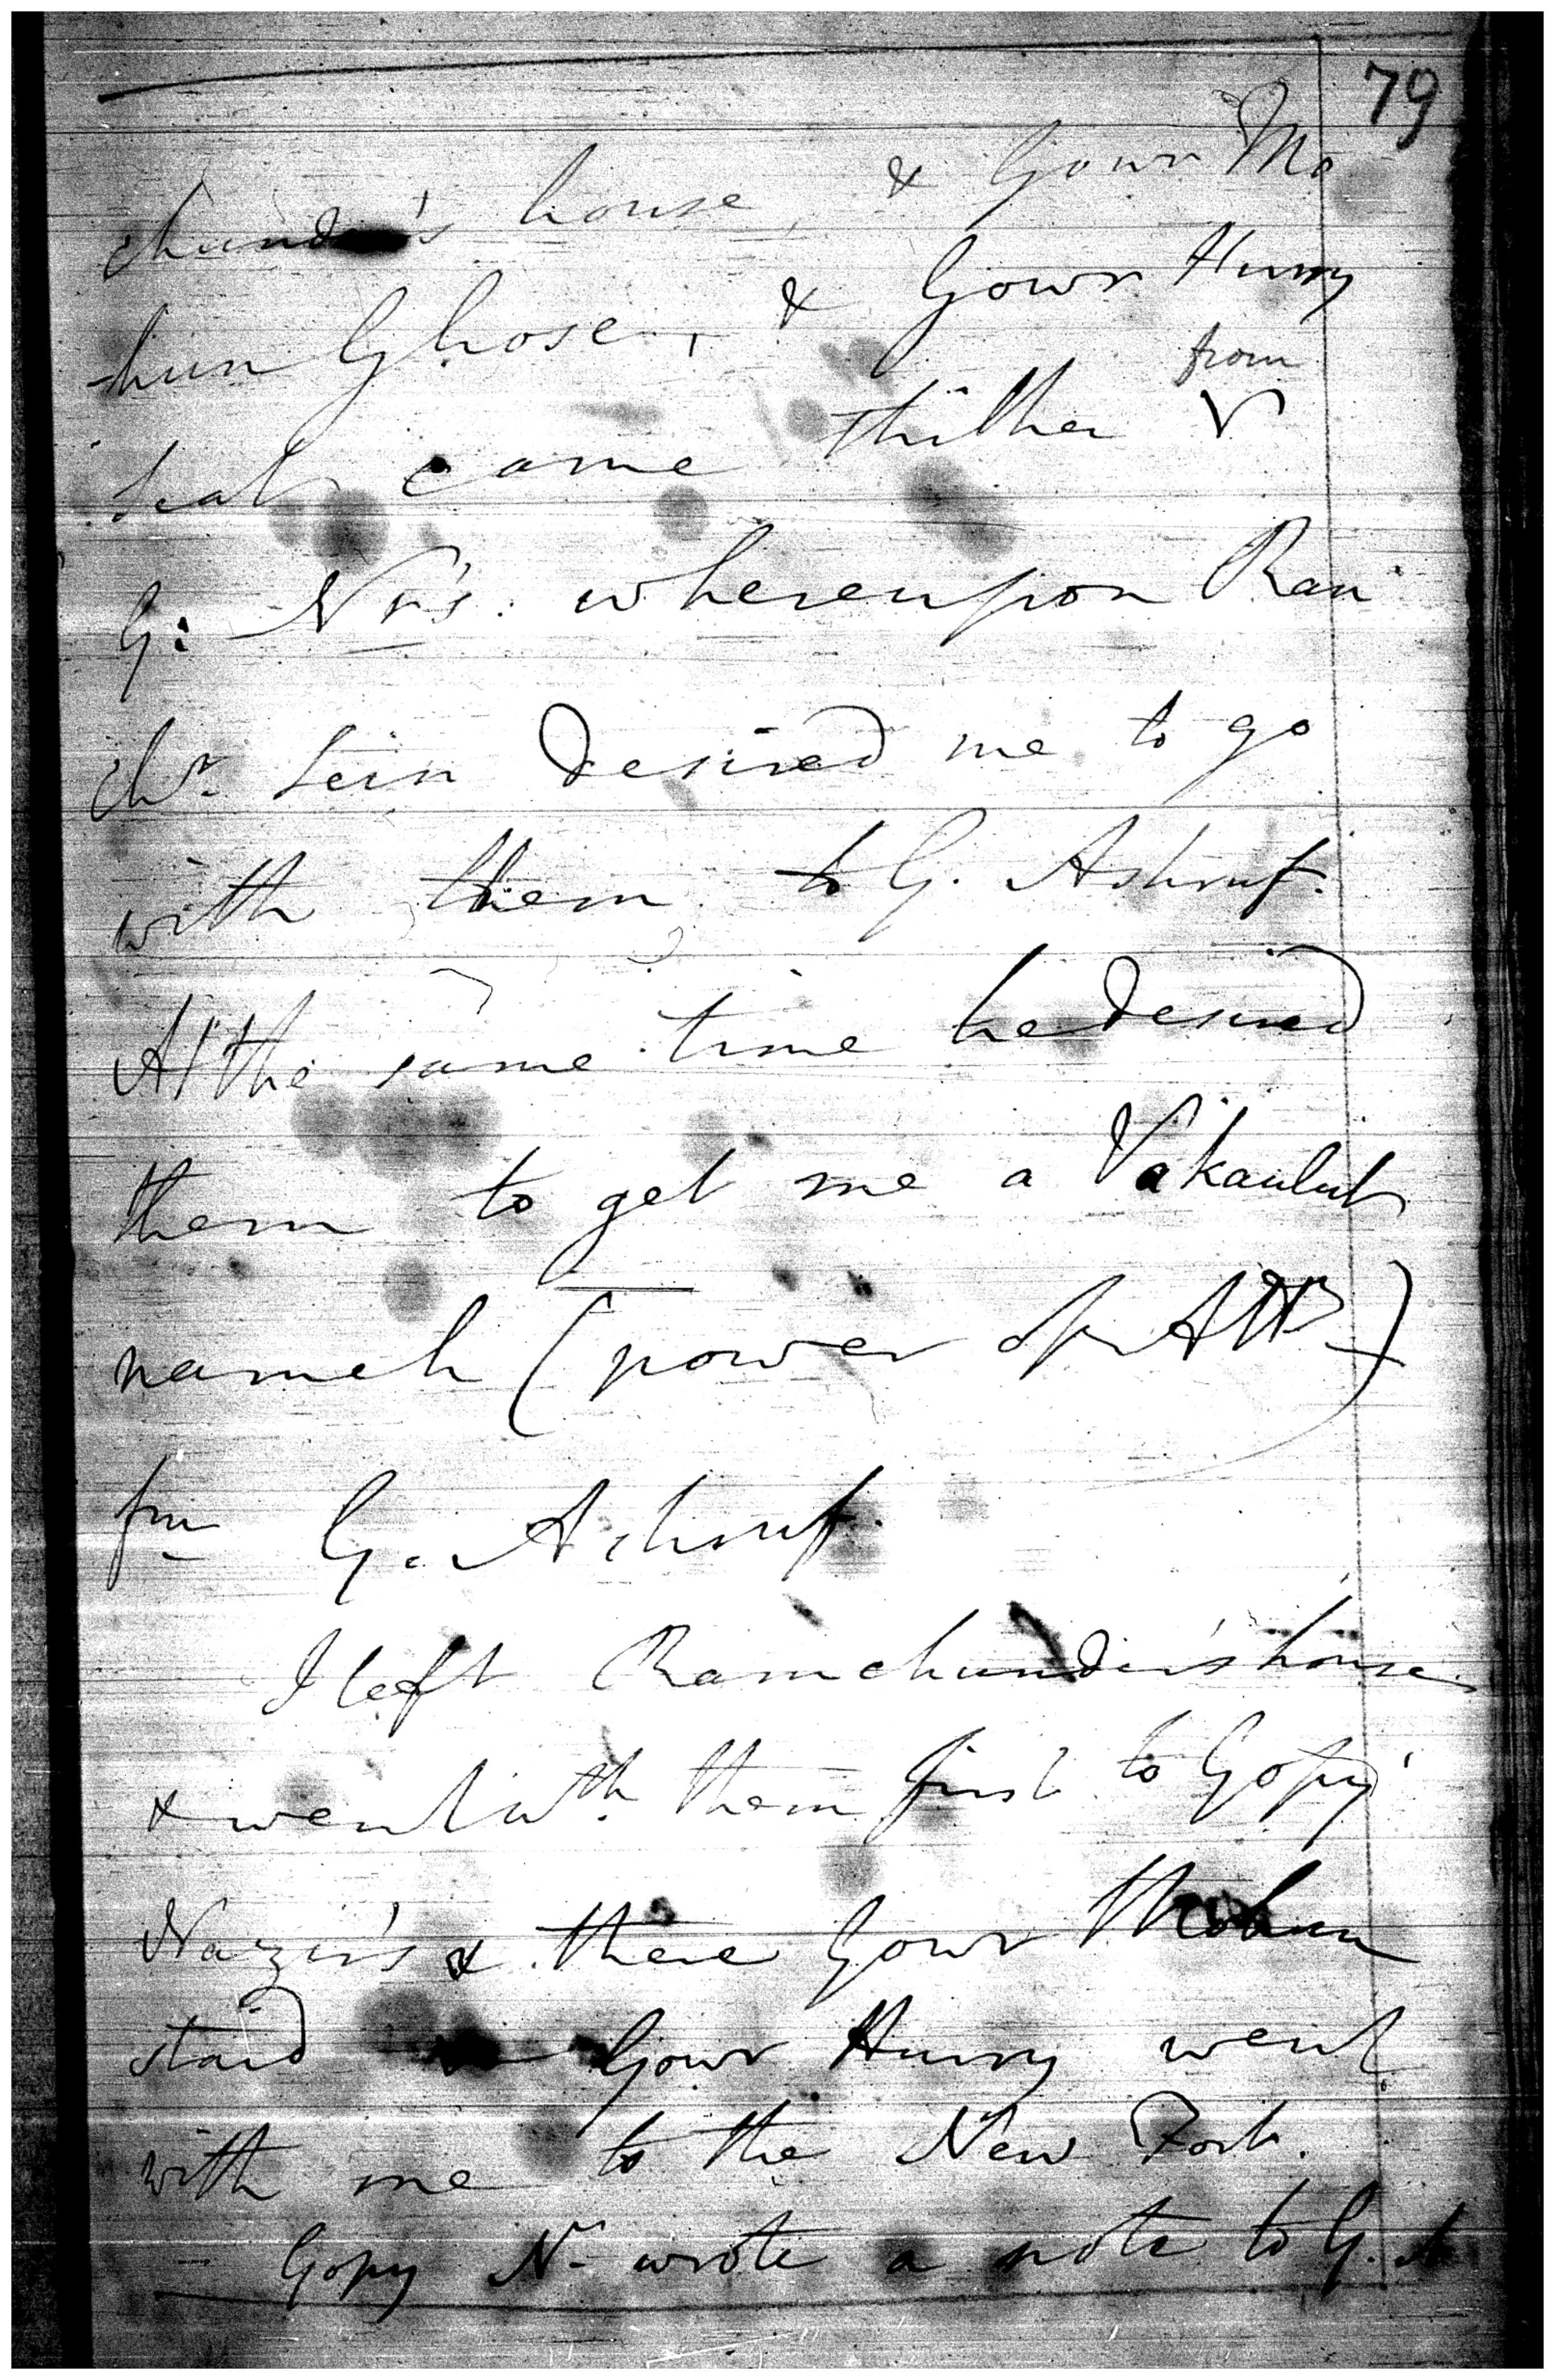 79
chunder's house, & Gour Mo
hun Ghose, & Gour Hurry
from
Seal came thither
G: Nr's. whereupon Ram
chr. Sein desired me to go
with them to G. Ashruf.
At the same time he desired
them to get me a Vakaulut
nameh (power of Atty)
fm G. Ashruf.
I left Ramchunder's house
& went wth. them first to Gopy
Nazir's & there Gour Mohun
staid Gour Hurry went
with me to the New Fort.
Gopy Nr wrote a note to G. A